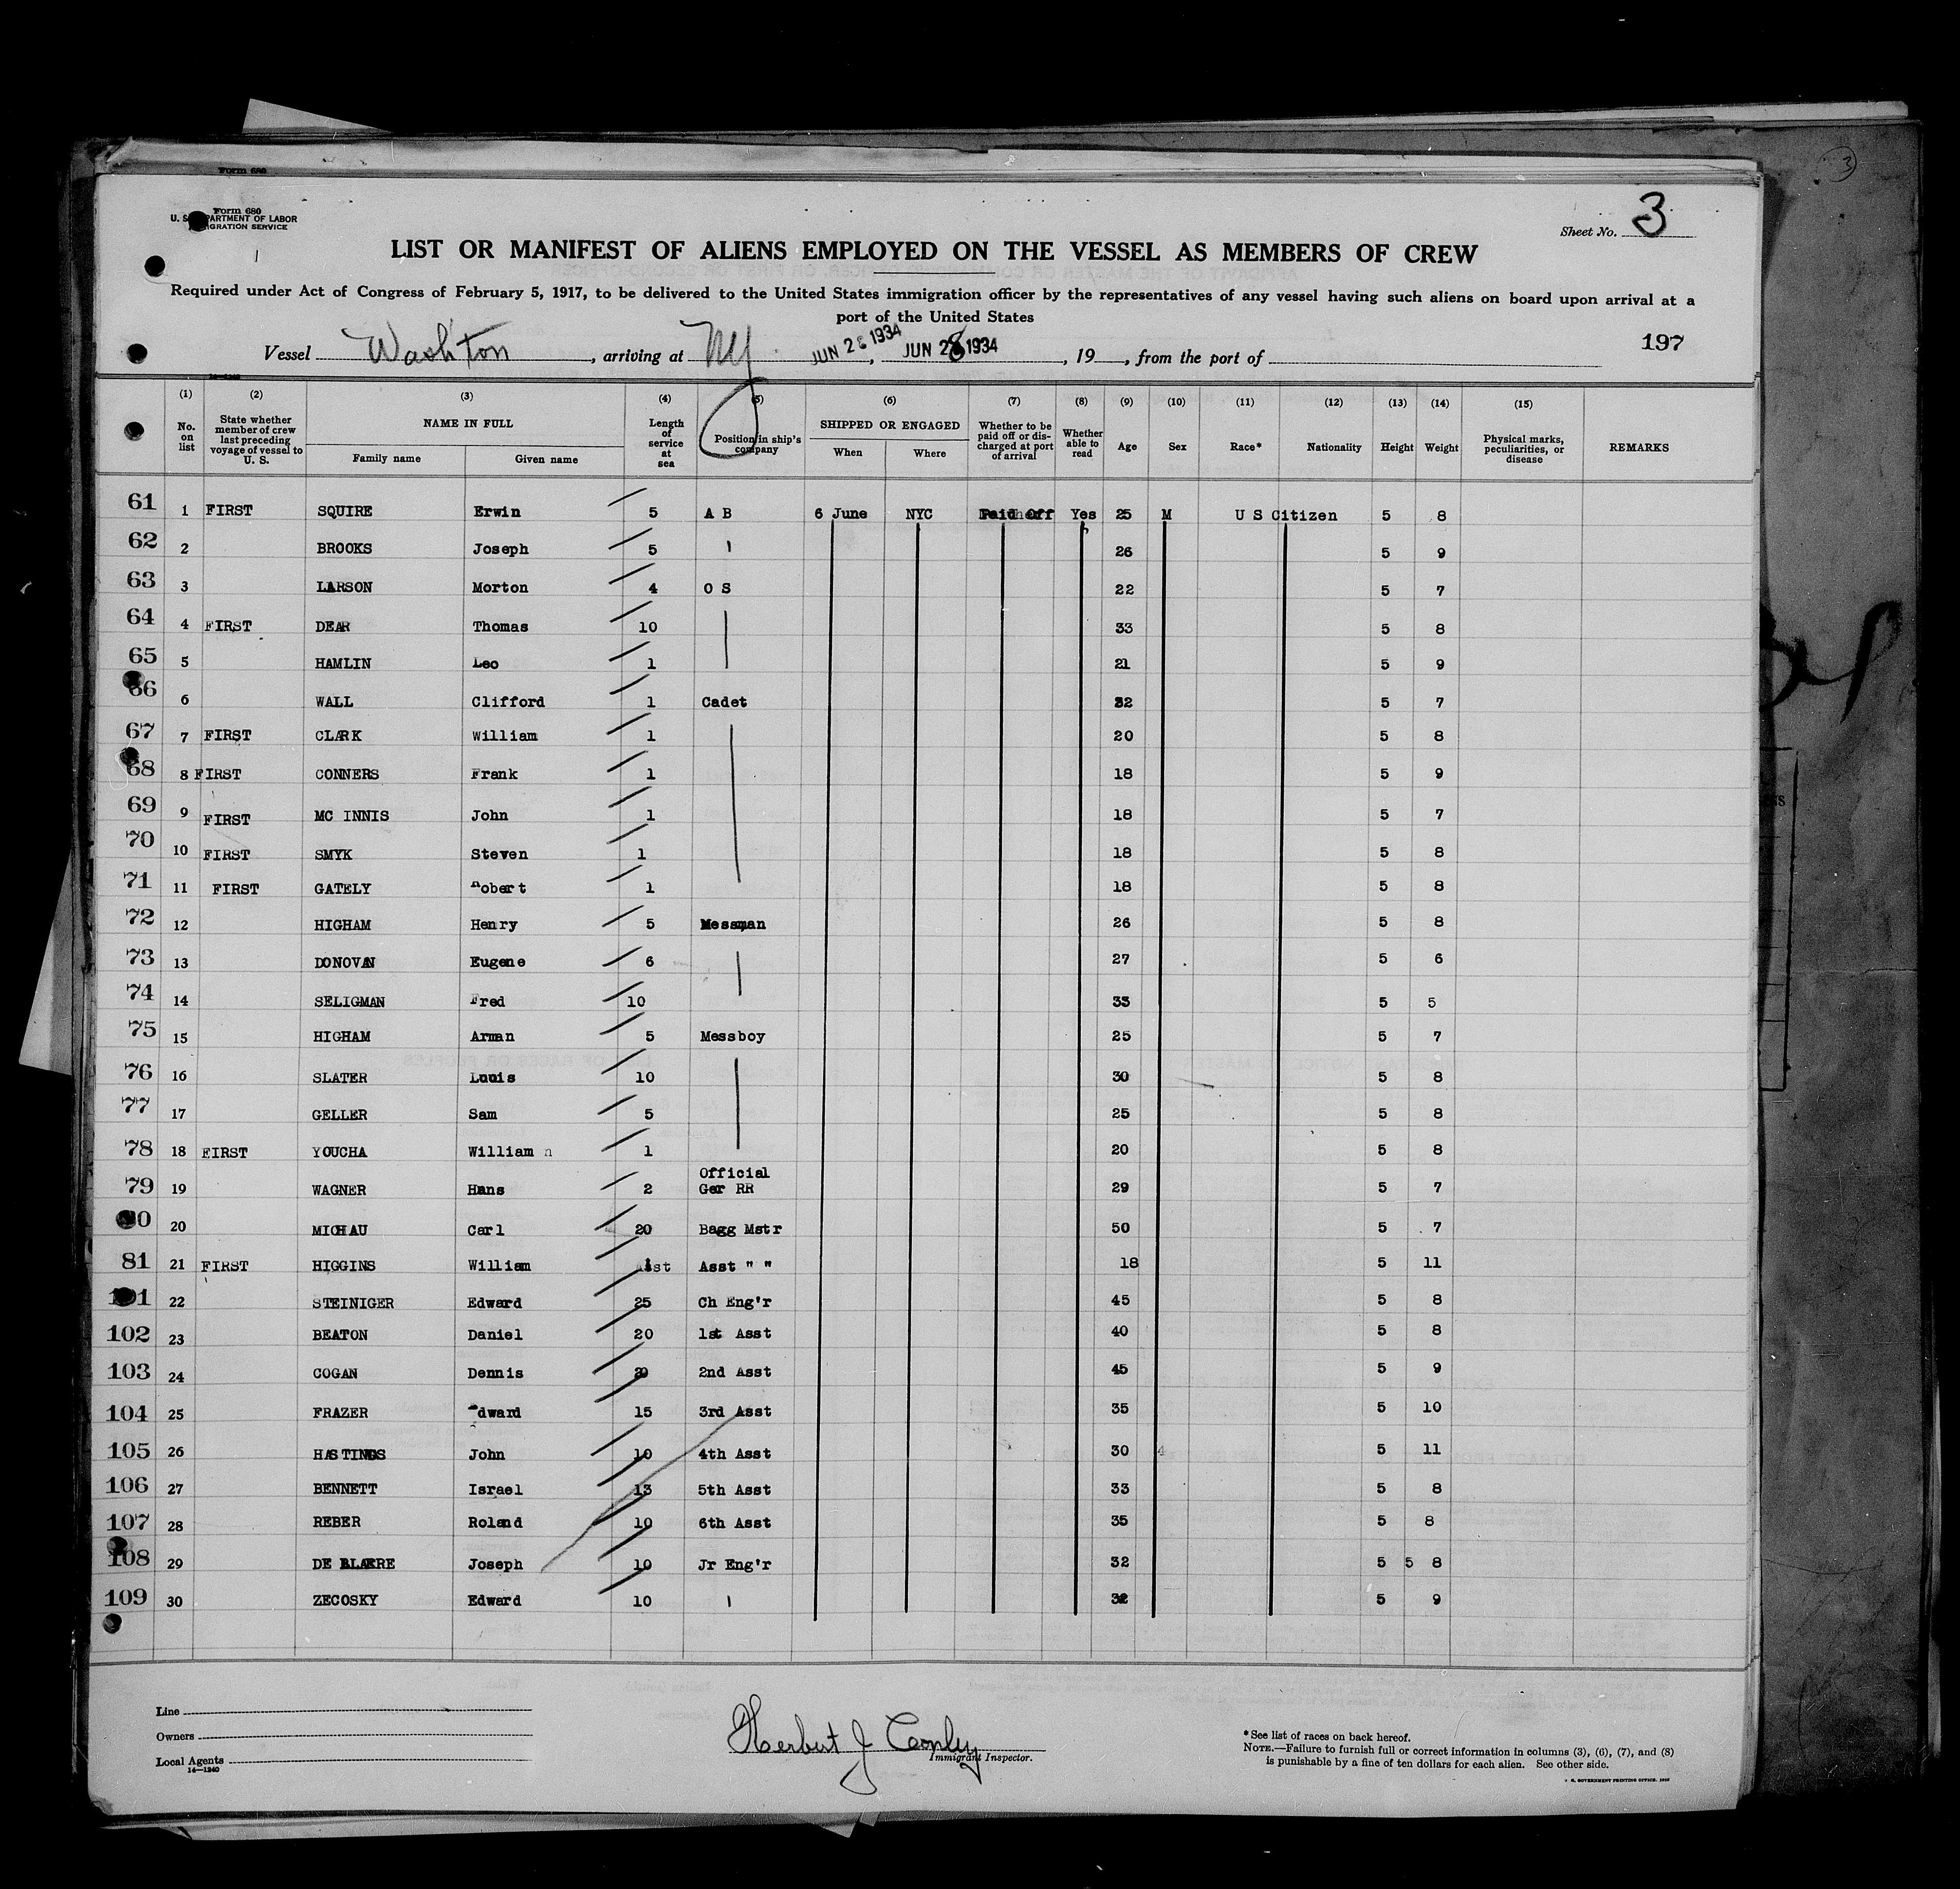 Form 680
Form 680
U. S. DEPARTMENT OF LABOR
IMMIGRATION SERVICE
Sheet No. 3
LIST OR MANIFEST OF ALIENS EMPLOYED ON THE VESSEL AS MEMBERS OF CREW
Required under Act of Congress of February 5, 1917, to be delivered to the United States immigration officer by the representatives of any vessel having such aliens on board upon arrival at a
port of the United States
197
Vessel Wash'ton, arriving at NY JUN 28 1934, JUN 28 1934, 19__, from the port of
(1) (2) (3) (4) (5) (6) (7) (8) (9) (10) (11) (12) (13) (14) (15)
No. on list State whether member of crew last preceding voyage of vessel to U. S. NAME IN FULL Family name Given name Length of service at sea Position in ship's company SHIPPED OR ENGAGED When Where Whether to be paid off or discharged at port of arrival Whether able to read Age Sex Race* Nationality Height Weight Physical marks, peculiarities, or disease REMARKS
61 1 FIRST SQUIRE Erwin 5 A B 6 June NYC Paid Off Yes 25 M U S Citizen 5 8
62 2 BROOKS Joseph 5 26 5 9
63 3 LARSON Morton 4 O S 22 5 7
64 4 FIRST DEAR Thomas 10 33 5 8
65 5 HAMLIN Leo 1 21 5 9
66 6 WALL Clifford 1 Cadet 5 7
67 7 FIRST CLARK William 1 20 5 8
68 8 FIRST CONNERS Frank 1 18 5 9
69 9 FIRST MC INNIS John 1 18 5 7
70 10 FIRST SMYK Steven 1 18 5 8
71 11 FIRST GATELY Robert 1 18 5 8
72 12 HIGHAM Henry 5 Messman 26 5 8
73 13 DONOVAN Eugene 6 27 5 6
74 14 SELIGMAN Fred 10 33 5 5
75 15 HIGHAM Arman 5 Messboy 25 5 7
76 16 SLATER Louis 10 30 5 8
77 17 GELLER Sam 5 25 5 8
78 18 FIRST YOUCHA William n 1 20 5 8
79 19 WAGNER Hans 2 Official Ger RR 29 5 7
80 20 MICHAU Carl 20 Bagg Mstr 50 5 7
81 21 FIRST HIGGINS William 1 Asst " " 18 5 11
101 22 STEINIGER Edward 25 Ch Eng'r 45 5 8
102 23 BEATON Daniel 20 1st Asst 40 5 8
103 24 COGAN Dennis 20 2nd Asst 45 5 9
104 25 FRAZER Edward 15 3rd Asst 35 5 10
105 26 HASTINGS John 10 4th Asst 30 4 5 11
106 27 BENNETT Israel 13 5th Asst 33 5 8
107 28 REBER Roland 10 6th Asst 35 5 8
108 29 DE BLAERE Joseph 10 Jr Eng'r 32 5 5 8
109 30 ZECOSKY Edward 10 32 5 9
Line
Owners
Local Agents
14—1240
Herbert J Conley
Immigrant Inspector.
* See list of races on back hereof.
NOTE.—Failure to furnish full or correct information in columns (3), (6), (7), and (8)
is punishable by a fine of ten dollars for each alien. See other side.
U. S. GOVERNMENT PRINTING OFFICE.